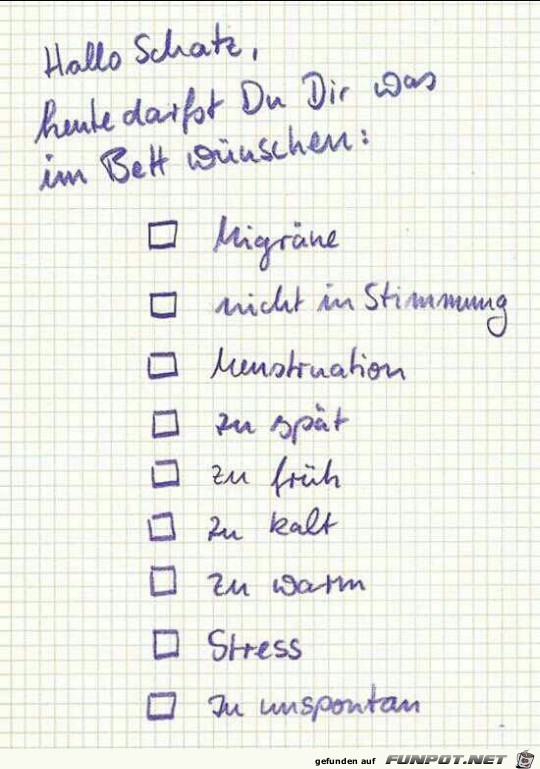 Hallo Schatz,
heute darfst Du Dir was
im Bett wünschen:
☐ Migräne
☐ nicht in Stimmung
☐ Menstruation
☐ zu spät
☐ zu früh
☐ zu kalt
☐ zu warm
☐ Stress
☐ zu unspontan
gefunden auf FUNPOT.NET